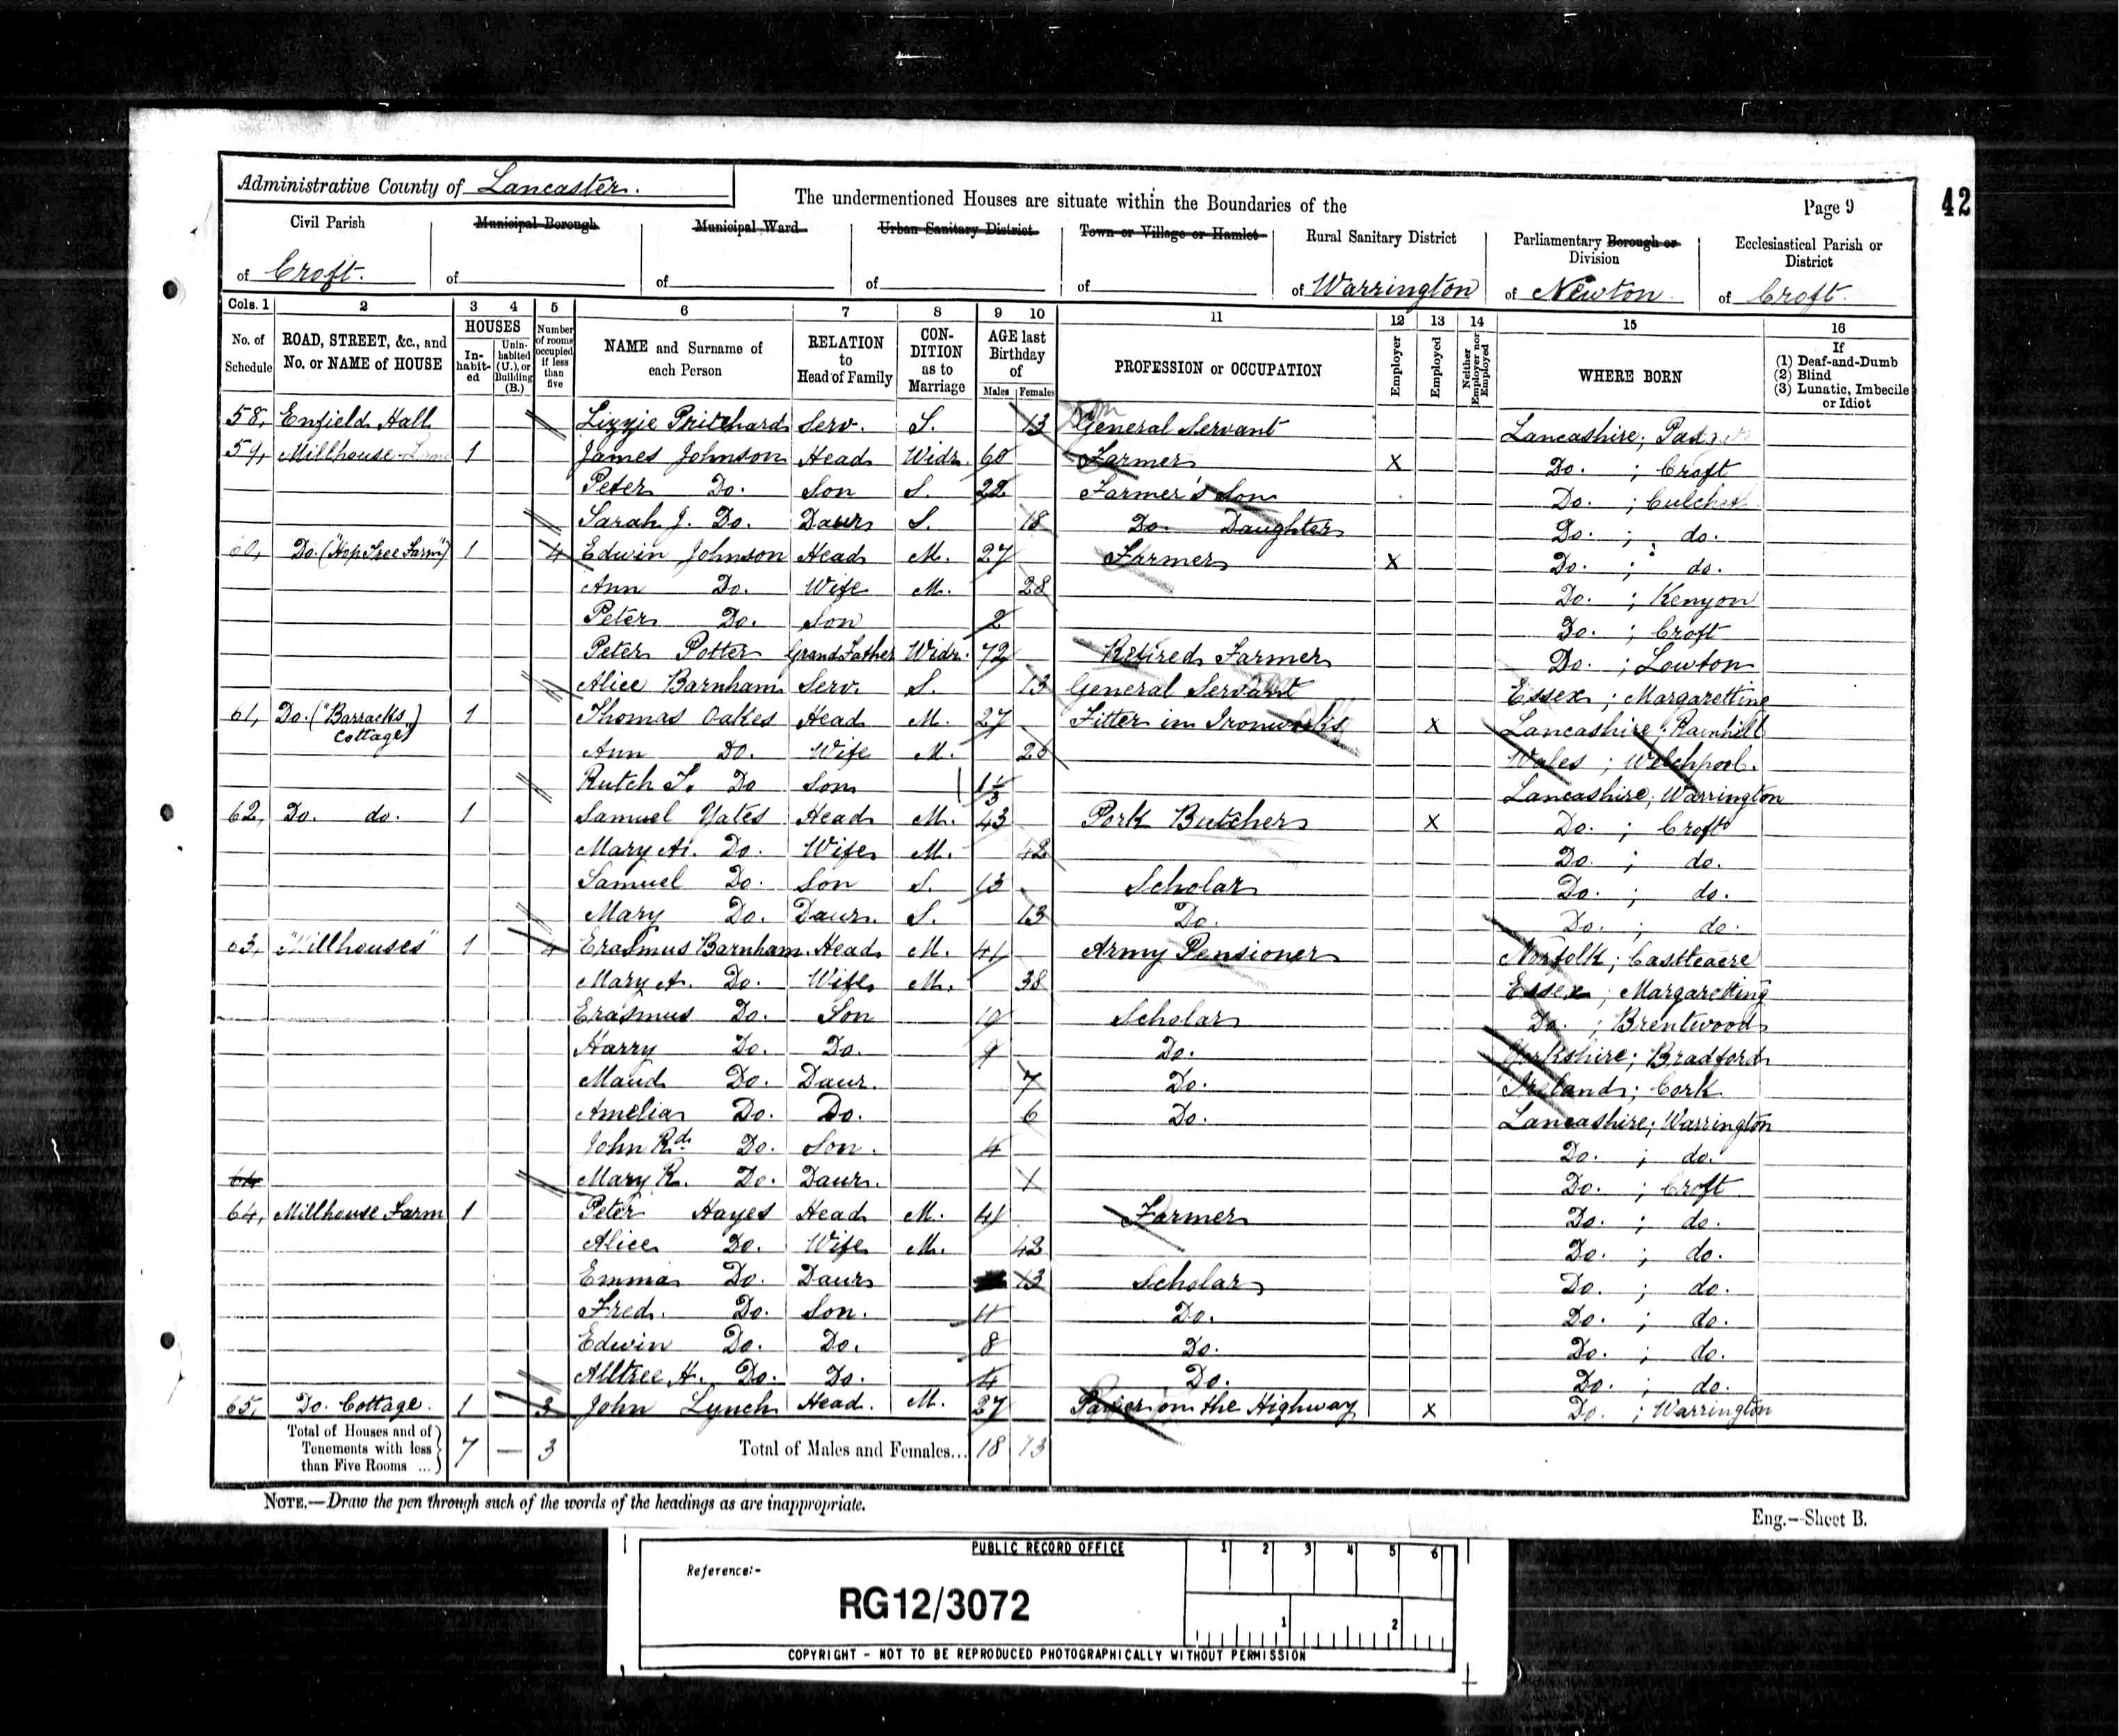 Administrative County of Lancaster.
The undermentioned Houses are situate within the Boundaries of the
Page 9
42
Civil Parish Municipal Borough Municipal Ward Urban Sanitary District Town or Village or Hamlet Rural Sanitary District Parliamentary Borough or Division Ecclesiastical Parish or District
of Croft. of of of of of Warrington of Newton of Croft.
Cols. 1 2 3 4 5 6 7 8 9 10 11 12 13 14 15 16
No. of Schedule ROAD, STREET, &c., and No. or NAME of HOUSE HOUSES Inhabited Uninhabited (U.), or Building (B.) Number of rooms occupied if less than five NAME and Surname of each Person RELATION to Head of Family CONDITION as to Marriage AGE last Birthday of Males Females PROFESSION or OCCUPATION Employer Employed Neither Employer nor Employed WHERE BORN If (1) Deaf-and-Dumb (2) Blind (3) Lunatic, Imbecile or Idiot
58, Enfield Hall Lizzie Pritchard Serv. S. 13 General Servant Lancashire;
59, Millhouse Lane 1 James Johnson Head Widr. 60 Farmer X Do. ; Croft
Peter Do. Son S. 22 Farmer's Son Do. ; Culcheth
Sarah J. Do. Daur S. 18 Do. Daughter Do. ; do.
60, Do. ("Hop Tree Farm") 1 4 Edwin Johnson Head M. 27 Farmer X Do. ; do.
Ann Do. Wife M. 28 Do. ; Kenyon
Peter Do. Son 2 Do. ; Croft
Peter Potter Grand Father Widr. 72 Retired Farmer Do. ; Lowton
Alice Barnham Serv. S. 13 General Servant Essex ; Margaretting
61, Do. ("Barracks Cottage") 1 Thomas Oakes Head M. 27 Fitter in Ironworks X Lancashire; Rainhill
Ann Do. Wife M. Wales ; Welchpool.
Do Son Lancashire; Warrington
62, Do. do. 1 Samuel Yates Head M. 43 Pork Butcher X Do. ; Croft
Mary A. Do. Wife M. 42 Do. ; do.
Samuel Do. Son S. 13 Scholar Do. ; do.
Mary Do. Daur. S. 13 Do. Do. ; do.
63, "Millhouses" 1 4 Erasmus Barnham Head M. 41 Army Pensioner Norfolk; Castleacre
Mary A. Do. Wife M. 38 Essex ; Margaretting
Erasmus Do. Son 10 Scholar Do. ; Brentwood
Harry Do. Do. 9 Do. Yorkshire; Bradford
Maud Do. Daur. 7 Do. Ireland; Cork
Amelia Do. Do. 6 Do. Lancashire; Warrington
John Rd. Do. Son. 4 Do. ; do.
64 Mary R. Do. Daur. 1 Do. ; Croft
64, Millhouse Farm 1 Peter Hayes Head M. 41 Farmer Do. ; do.
Alice Do. Wife M. 42 Do. ; do.
Emma Do. Daur 13 Scholar Do. ; do.
Fred. Do. Son. 11 Do. Do. ; do.
Edwin Do. Do. 8 Do. Do. ; do.
Alltree H. Do. Do. 4 Do. Do. ; do.
65, Do. Cottage. 1 3 John Lynch Head. M. 27 Paver on the Highway X Do. ; Warrington
Total of Houses and of Tenements with less than Five Rooms ... 7 — 3 Total of Males and Females... 18 13
NOTE.—Draw the pen through such of the words of the headings as are inappropriate.
Eng.—Sheet B.
PUBLIC RECORD OFFICE
1 2 3 4 5 6
Reference:-
RG12/3072
1 2
COPYRIGHT - NOT TO BE REPRODUCED PHOTOGRAPHICALLY WITHOUT PERMISSION